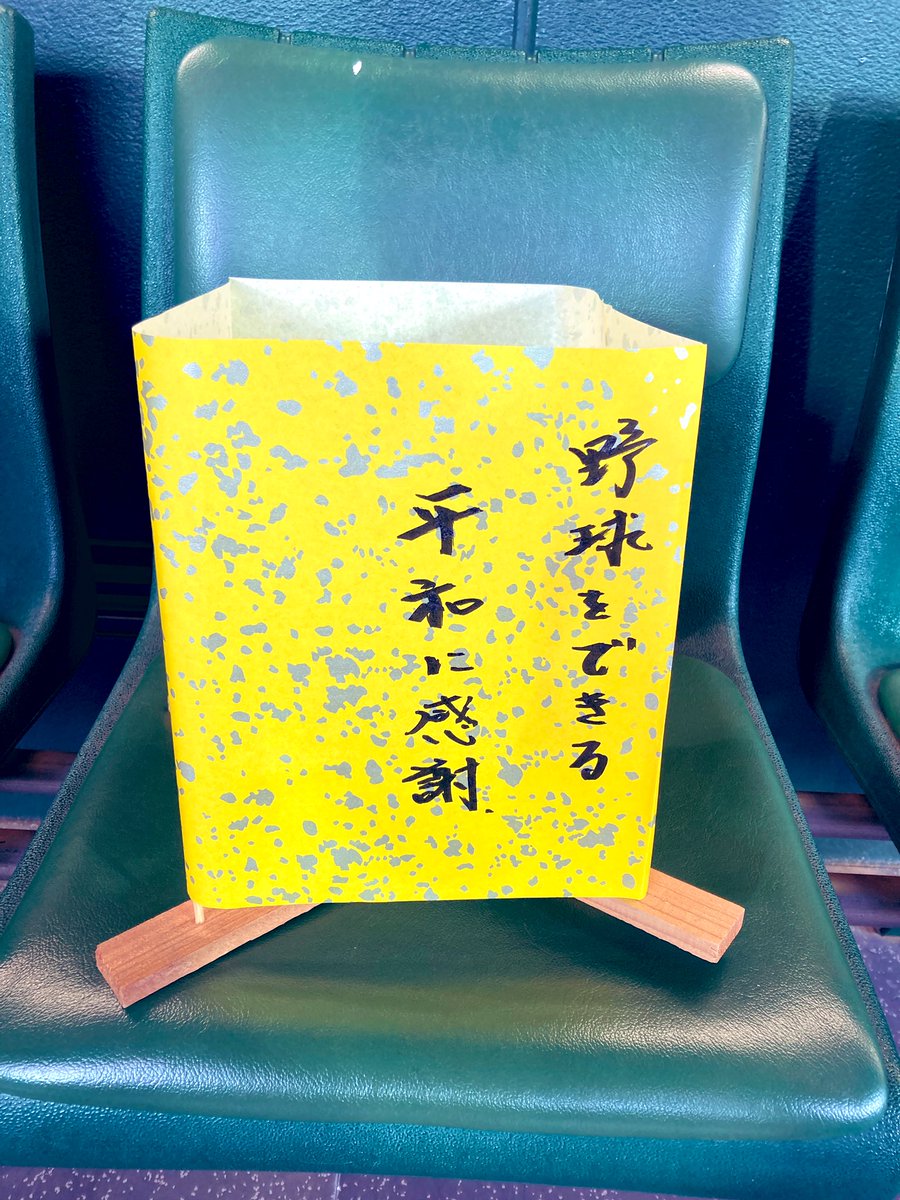 野球をできる
平和に感謝.